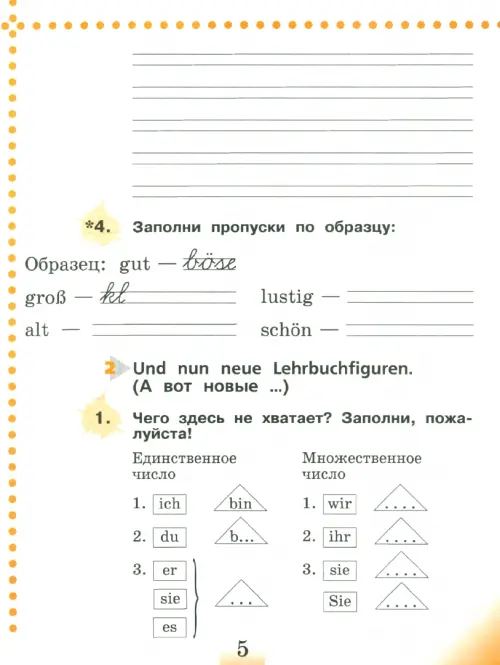 *4. Заполни пропуски по образцу:
Образец: gut — böse
groß — kl
lustig —
alt —
schön —
2 Und nun neue Lehrbuchfiguren.
(А вот новые ...)
1. Чего здесь не хватает? Заполни, пожа-
луйста!
Единственное
число
Множественное
число
1. ich bin
1. wir ....
2. du b...
2. ihr ....
3. er
sie ...
es
3. sie ....
Sie ....
5